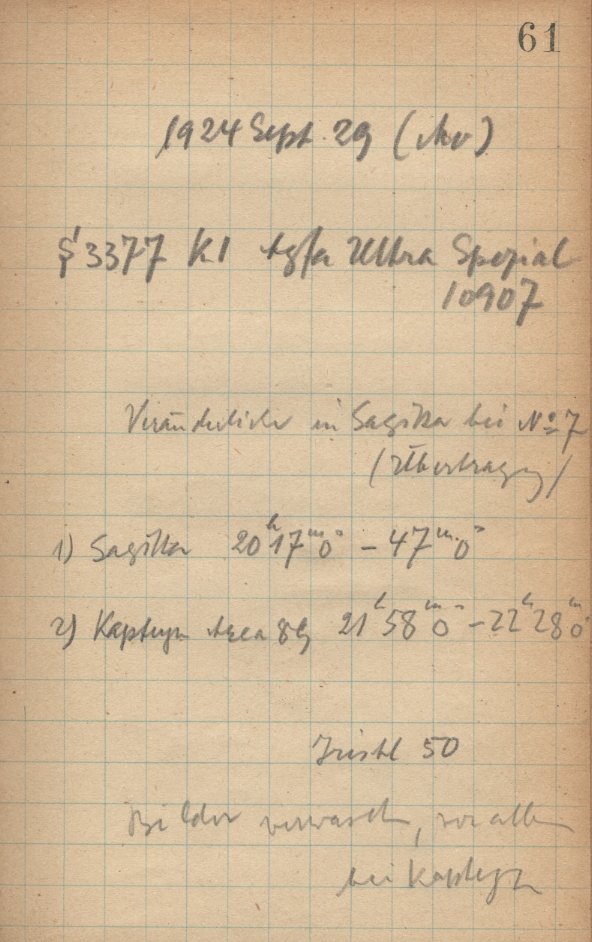 61
1924 Sept. 29 (Mo)
S 3377 KI Agfa Ultra Spezial
10907
Veränderliche in Sagitta bei No 7
(Übertragung)
1) Sagitta 20h17m0s – 47m0s
2) Kapteyn Area 89 21h58m0s – 22h28m0s
Irisbl 50
Bilder verwaschen, vor allem
bei Kapteyn